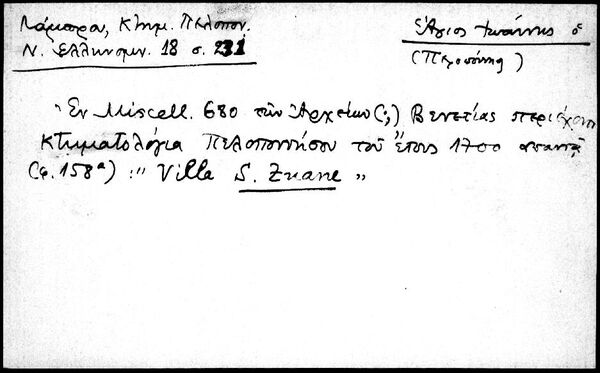 Λάμπρα, Κτημ. Πελοπον.
Ν. Ελληνομν. 18 σ. 231
Ἅγιος Ἰωάννης ὁ
(Πελοπόννησ)
Ἐν Miscell. 680 τῶν Ἀρχείων (;) Βενετίας περιέχον
κτηματολόγια Πελοποννήσου τοῦ ἔτους 1700 ἀπαντᾷ
(φ. 158α) : " Villa S. Zuane "